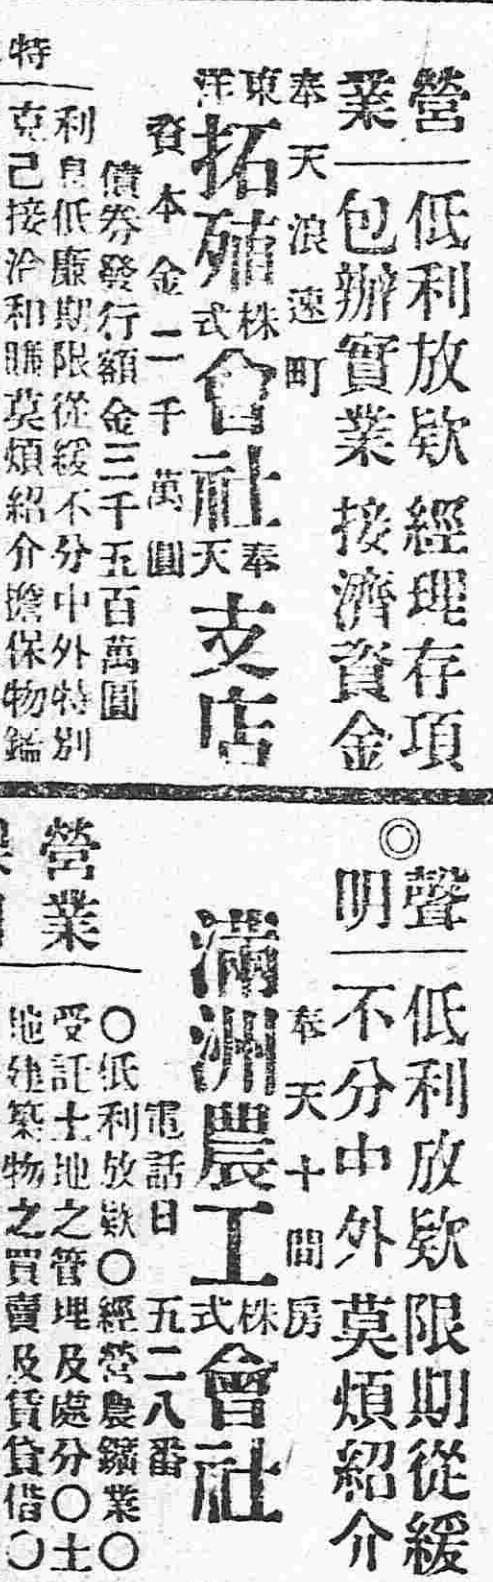 營業
低利放欵 經理存項
包辦實業 接濟資金
奉天浪速町
東洋拓殖株式會社奉天支店
資本金二千萬圓
債券發行額金三千五百萬圓
特
利息低廉期限從緩不分中外特別
克己接洽和賜莫煩紹介擔保物鑑
◎聲明
低利放欵 限期從緩
不分中外 莫煩紹介
奉天十間房
滿洲農工株式會社
電話日 五二八番
營業
○低利放欵○經營農鑛業○
受託土地之管理及處分○土
地建築物之買賣及賃貸借○